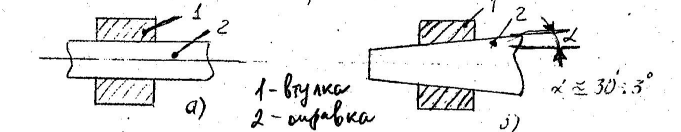 1 2
а)
1 - втулка
2 - оправка
1 2 α
α ≅ 30' ÷ 3°
б)